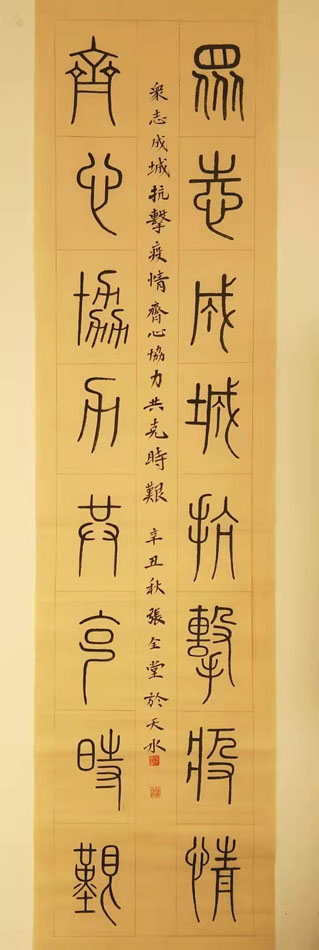 眾志成城抗擊疫情
齊心協力共克時艱
眾志成城抗擊疫情齊心協力共克時艱 辛丑秋張仝堂於天水